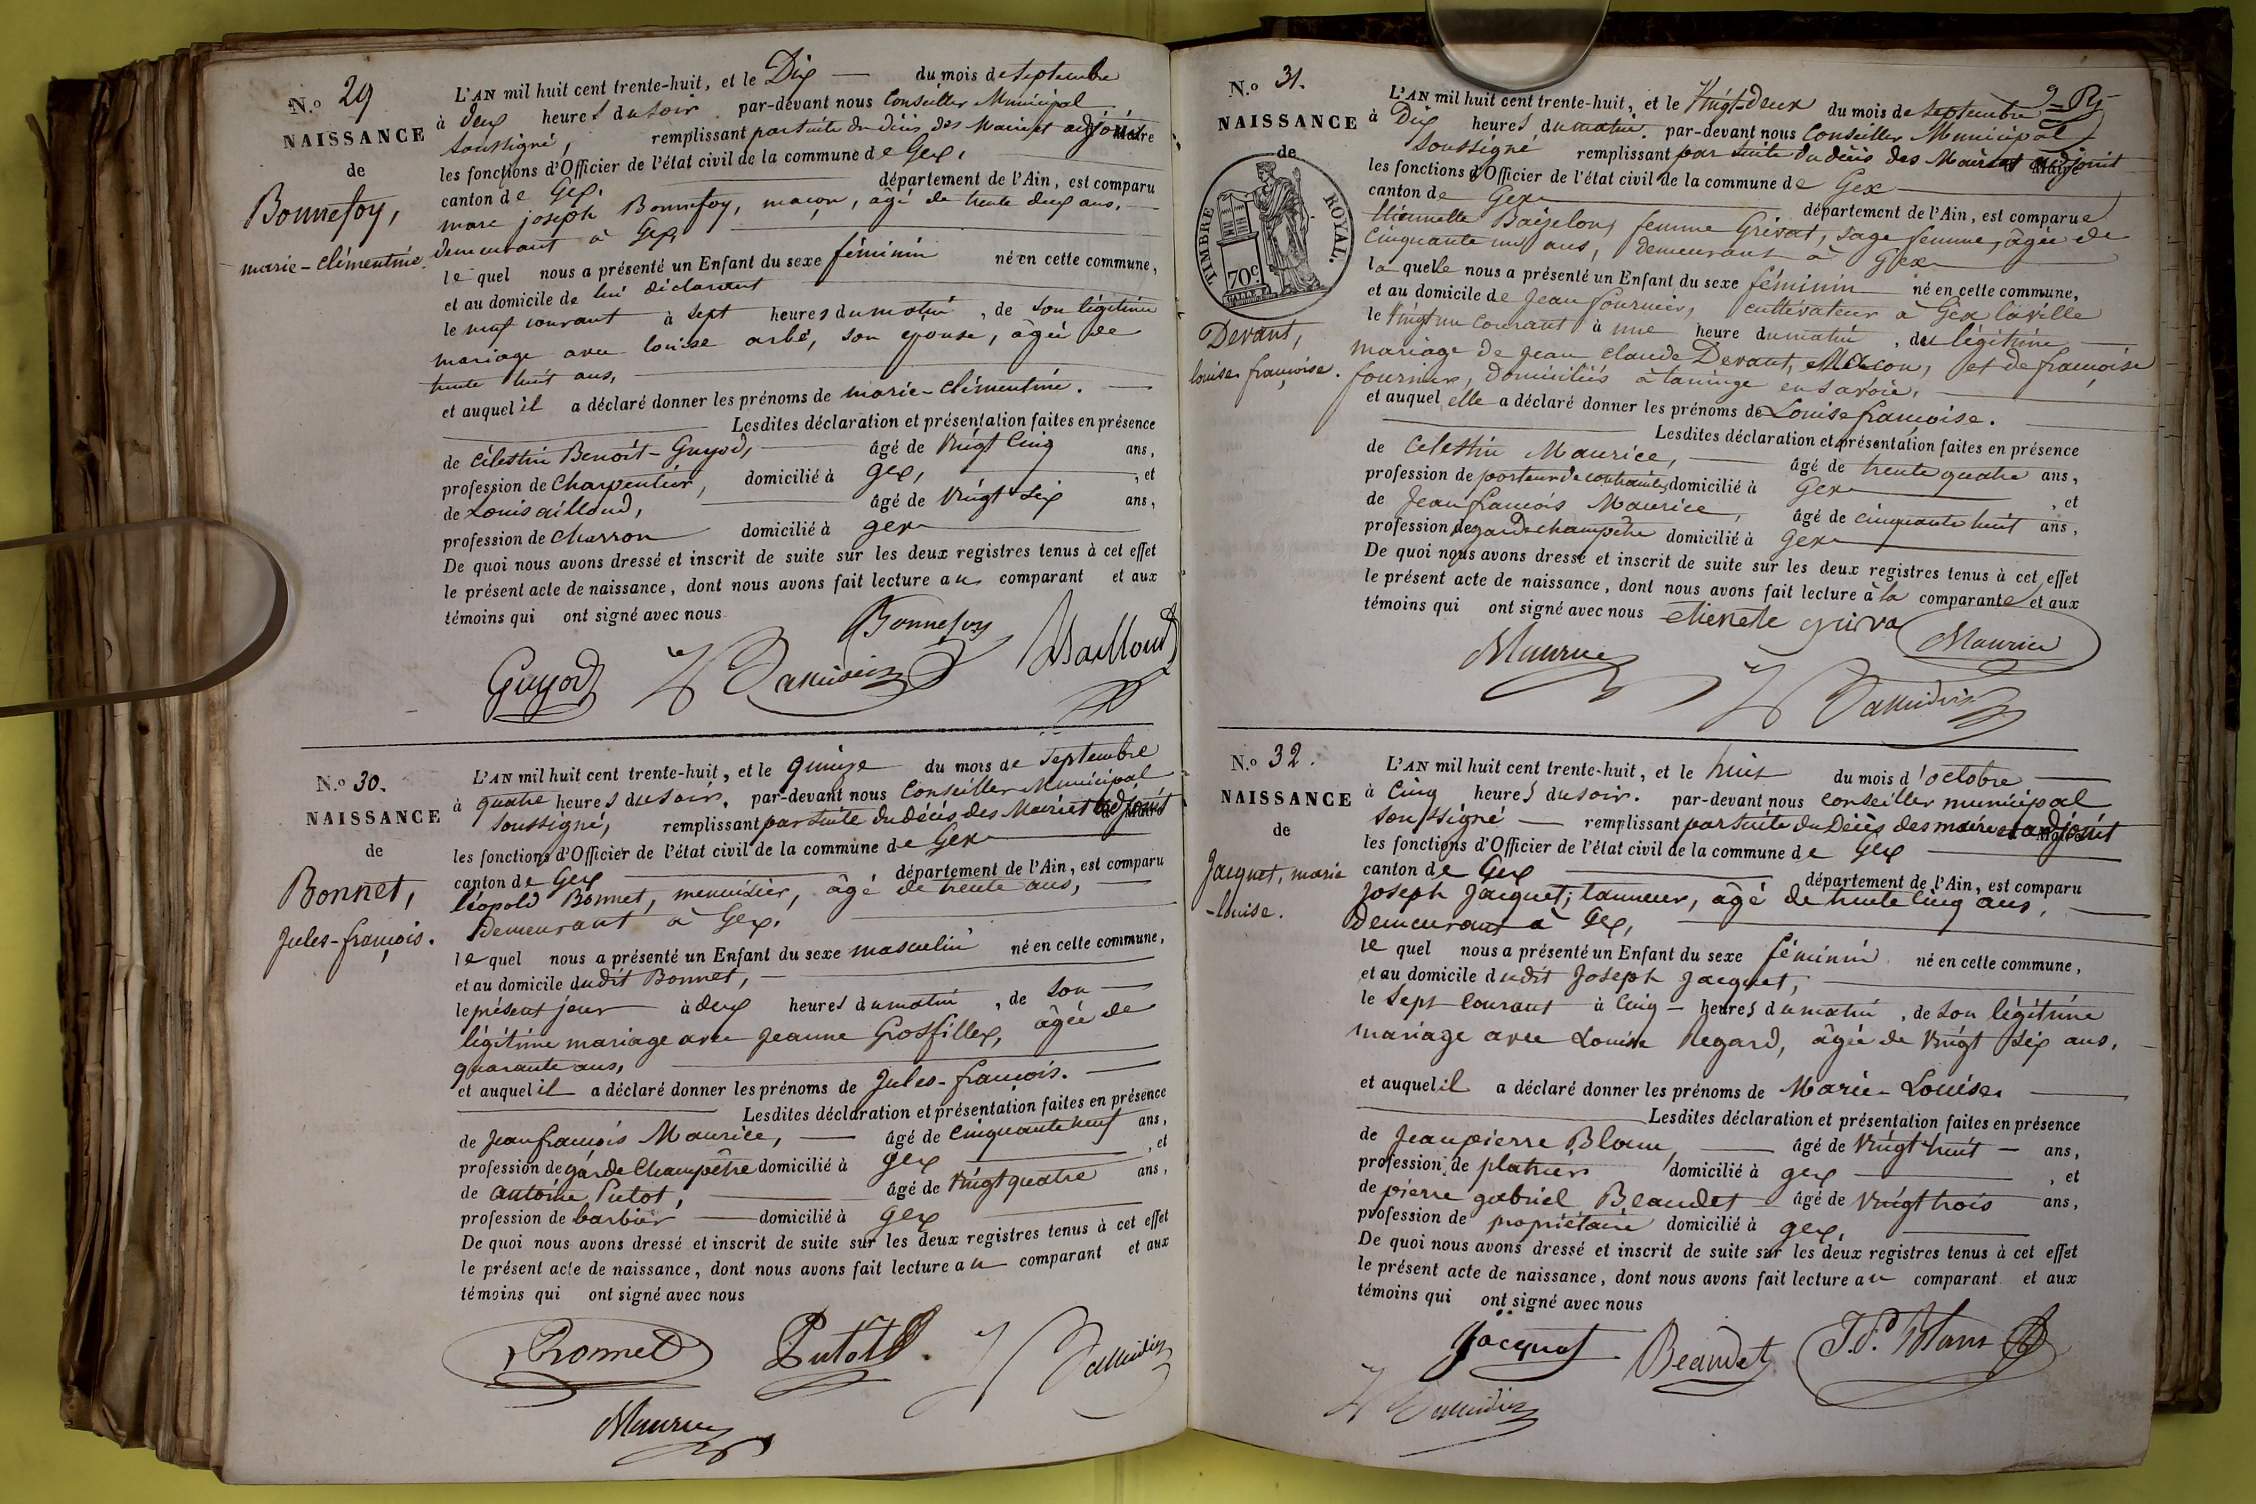 N.o 29
NAISSANCE
de
Bonnefoy,
marie-clémentine.
L'AN mil huit cent trente-huit, et le Dix du mois de septembre
à deux heures du soir. par-devant nous Conseiller Municipal
soussigné, remplissant par suite du décès des Maire et adjoint
les fonctions d'Officier de l'état civil de la commune de Gex,
canton de Gex. département de l'Ain, est comparu
marc joseph Bonnefoy, maçon, âgé de trente deux ans,
demeurant à Gex
le quel nous a présenté un Enfant du sexe féminin né en cette commune,
et au domicile de lui déclarant
le neuf courant à sept heures du matin, de son légitime
mariage avec louise arbé, son epouse, âgée de
trente huit ans,
et auquel il a déclaré donner les prénoms de marie-clémentine.
Lesdites déclaration et présentation faites en présence
de célestin Benoit-Guyod, âgé de vingt cinq ans,
profession de Charpentier, domicilié à gex, et
de Louis ailloud, âgé de vingt-six ans,
profession de Charron domicilié à gex
De quoi nous avons dressé et inscrit de suite sur les deux registres tenus à cet effet
le présent acte de naissance, dont nous avons fait lecture au comparant et aux
témoins qui ont signé avec nous
Bonnefoy
Guyod
N.o 30.
NAISSANCE
de
Bonnet,
Jules-françois.
L'AN mil huit cent trente-huit, et le quinze du mois de septembre
à quatre heures du soir. par-devant nous Conseiller Municipal
soussigné, remplissant par suite du décès des Maire et adjoint
les fonctions d'Officier de l'état civil de la commune de Gex
canton de Gex département de l'Ain, est comparu
léopold Bonnet, menuisier, âgé de trente ans,
demeurant à Gex,
le quel nous a présenté un Enfant du sexe masculin né en cette commune,
et au domicile dudit Bonnet,
le présent jour à deux heures du matin, de son
légitime mariage avec Jeanne Grosfillex, âgée de
quarante ans,
et auquel il a déclaré donner les prénoms de Jules-françois.
Lesdites déclaration et présentation faites en présence
de Jean françois Maurice, âgé de cinquante huit ans,
profession de garde Champêtre domicilié à gex, et
de antoine Putot, âgé de vingt quatre ans,
profession de barbier domicilié à gex
De quoi nous avons dressé et inscrit de suite sur les deux registres tenus à cet effet
le présent acte de naissance, dont nous avons fait lecture au comparant et aux
témoins qui ont signé avec nous
Bonnet Putot
Maurice
9 Rj
N.o 31.
NAISSANCE
de
TIMBRE ROYAL.
70c
Devant,
louise françoise.
L'AN mil huit cent trente-huit, et le vingt-deux du mois de septembre
à Dix heures du matin. par-devant nous Conseiller Municipal
soussigné remplissant par suite du décès des Maire et adjoint
les fonctions d'Officier de l'état civil de la commune de Gex
canton de Gex département de l'Ain, est comparue
femme Grivat, sage femme, âgée de
cinquante un ans, demeurant à Gex
la quelle nous a présenté un Enfant du sexe féminin né en cette commune,
et au domicile de Jean fournier, cultivateur à Gex la ville
le vingt un courant à une heure du matin, du légitime
mariage de Jean claude Devant, Maçon, et de françoise
fournier, domiciliés à taninge en savoie,
et auquel elle a déclaré donner les prénoms de Louise françoise.
Lesdites déclaration et présentation faites en présence
de Celestin Maurice, âgé de trente quatre ans,
profession de porteur de contraintes domicilié à Gex, et
de Jean françois Maurice, âgé de cinquante huit ans,
profession de garde champêtre domicilié à Gex
De quoi nous avons dressé et inscrit de suite sur les deux registres tenus à cet effet
le présent acte de naissance, dont nous avons fait lecture à la comparante et aux
témoins qui ont signé avec nous
Maurice
Maurice
N.o 32.
NAISSANCE
de
Jacquet, marie
-louise.
L'AN mil huit cent trente-huit, et le huit du mois d'octobre
à Cinq heures du soir. par-devant nous conseiller municipal
soussigné remplissant par suite du Décès des maire et adjoint
les fonctions d'Officier de l'état civil de la commune de Gex
canton de Gex département de l'Ain, est comparu
Joseph Jacquet, tanneur, âgé de trente cinq ans,
Demeurant à Gex,
le quel nous a présenté un Enfant du sexe féminin né en cette commune,
et au domicile dudit Joseph Jacquet,
le sept courant à Cinq heures du matin, de son légitime
mariage avec Louise Regard, âgée de vingt six ans,
et auquel il a déclaré donner les prénoms de Marie-Louise
Lesdites déclaration et présentation faites en présence
de Jean pierre Blanc, âgé de vingt huit ans,
profession de platrier domicilié à gex, et
de pierre gabriel Beaudet âgé de vingt trois ans,
profession de propriétaire domicilié à gex,
De quoi nous avons dressé et inscrit de suite sur les deux registres tenus à cet effet
le présent acte de naissance, dont nous avons fait lecture au comparant et aux
témoins qui ont signé avec nous
Jacquet Beaudet J. P. Blanc